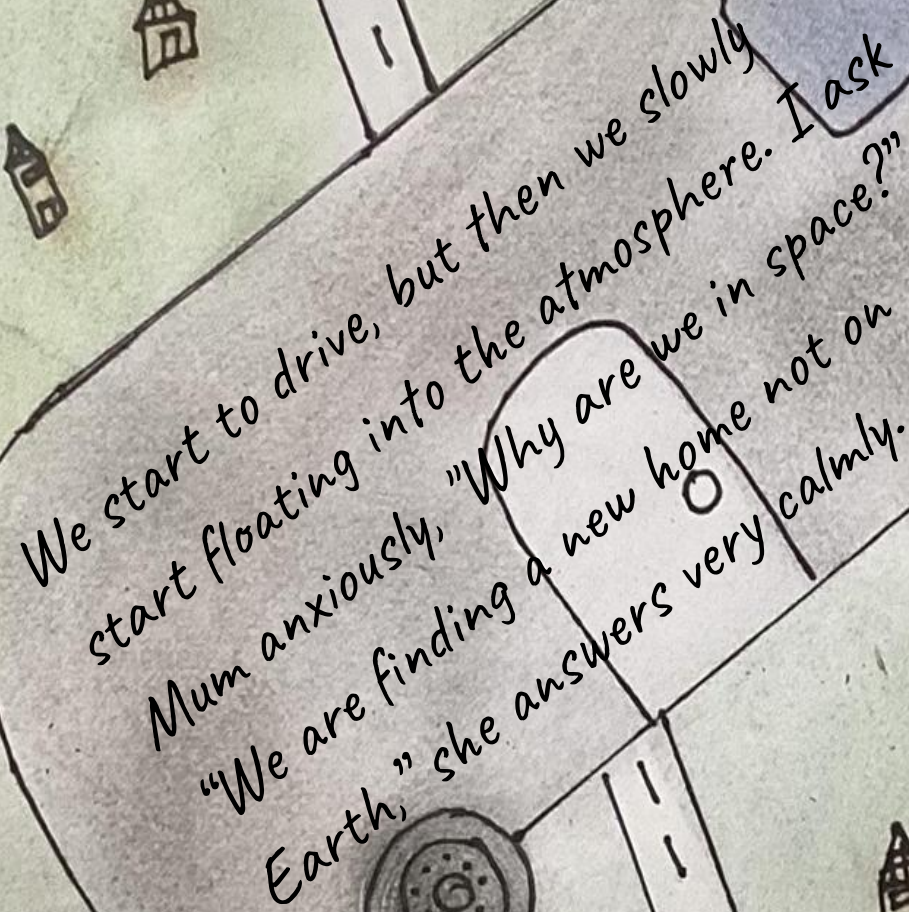 We start to drive, but then we slowly
start floating into the atmosphere. I ask
Mum anxiously, "Why are we in space?”
“We are finding a new home not on
Earth,” she answers very calmly.